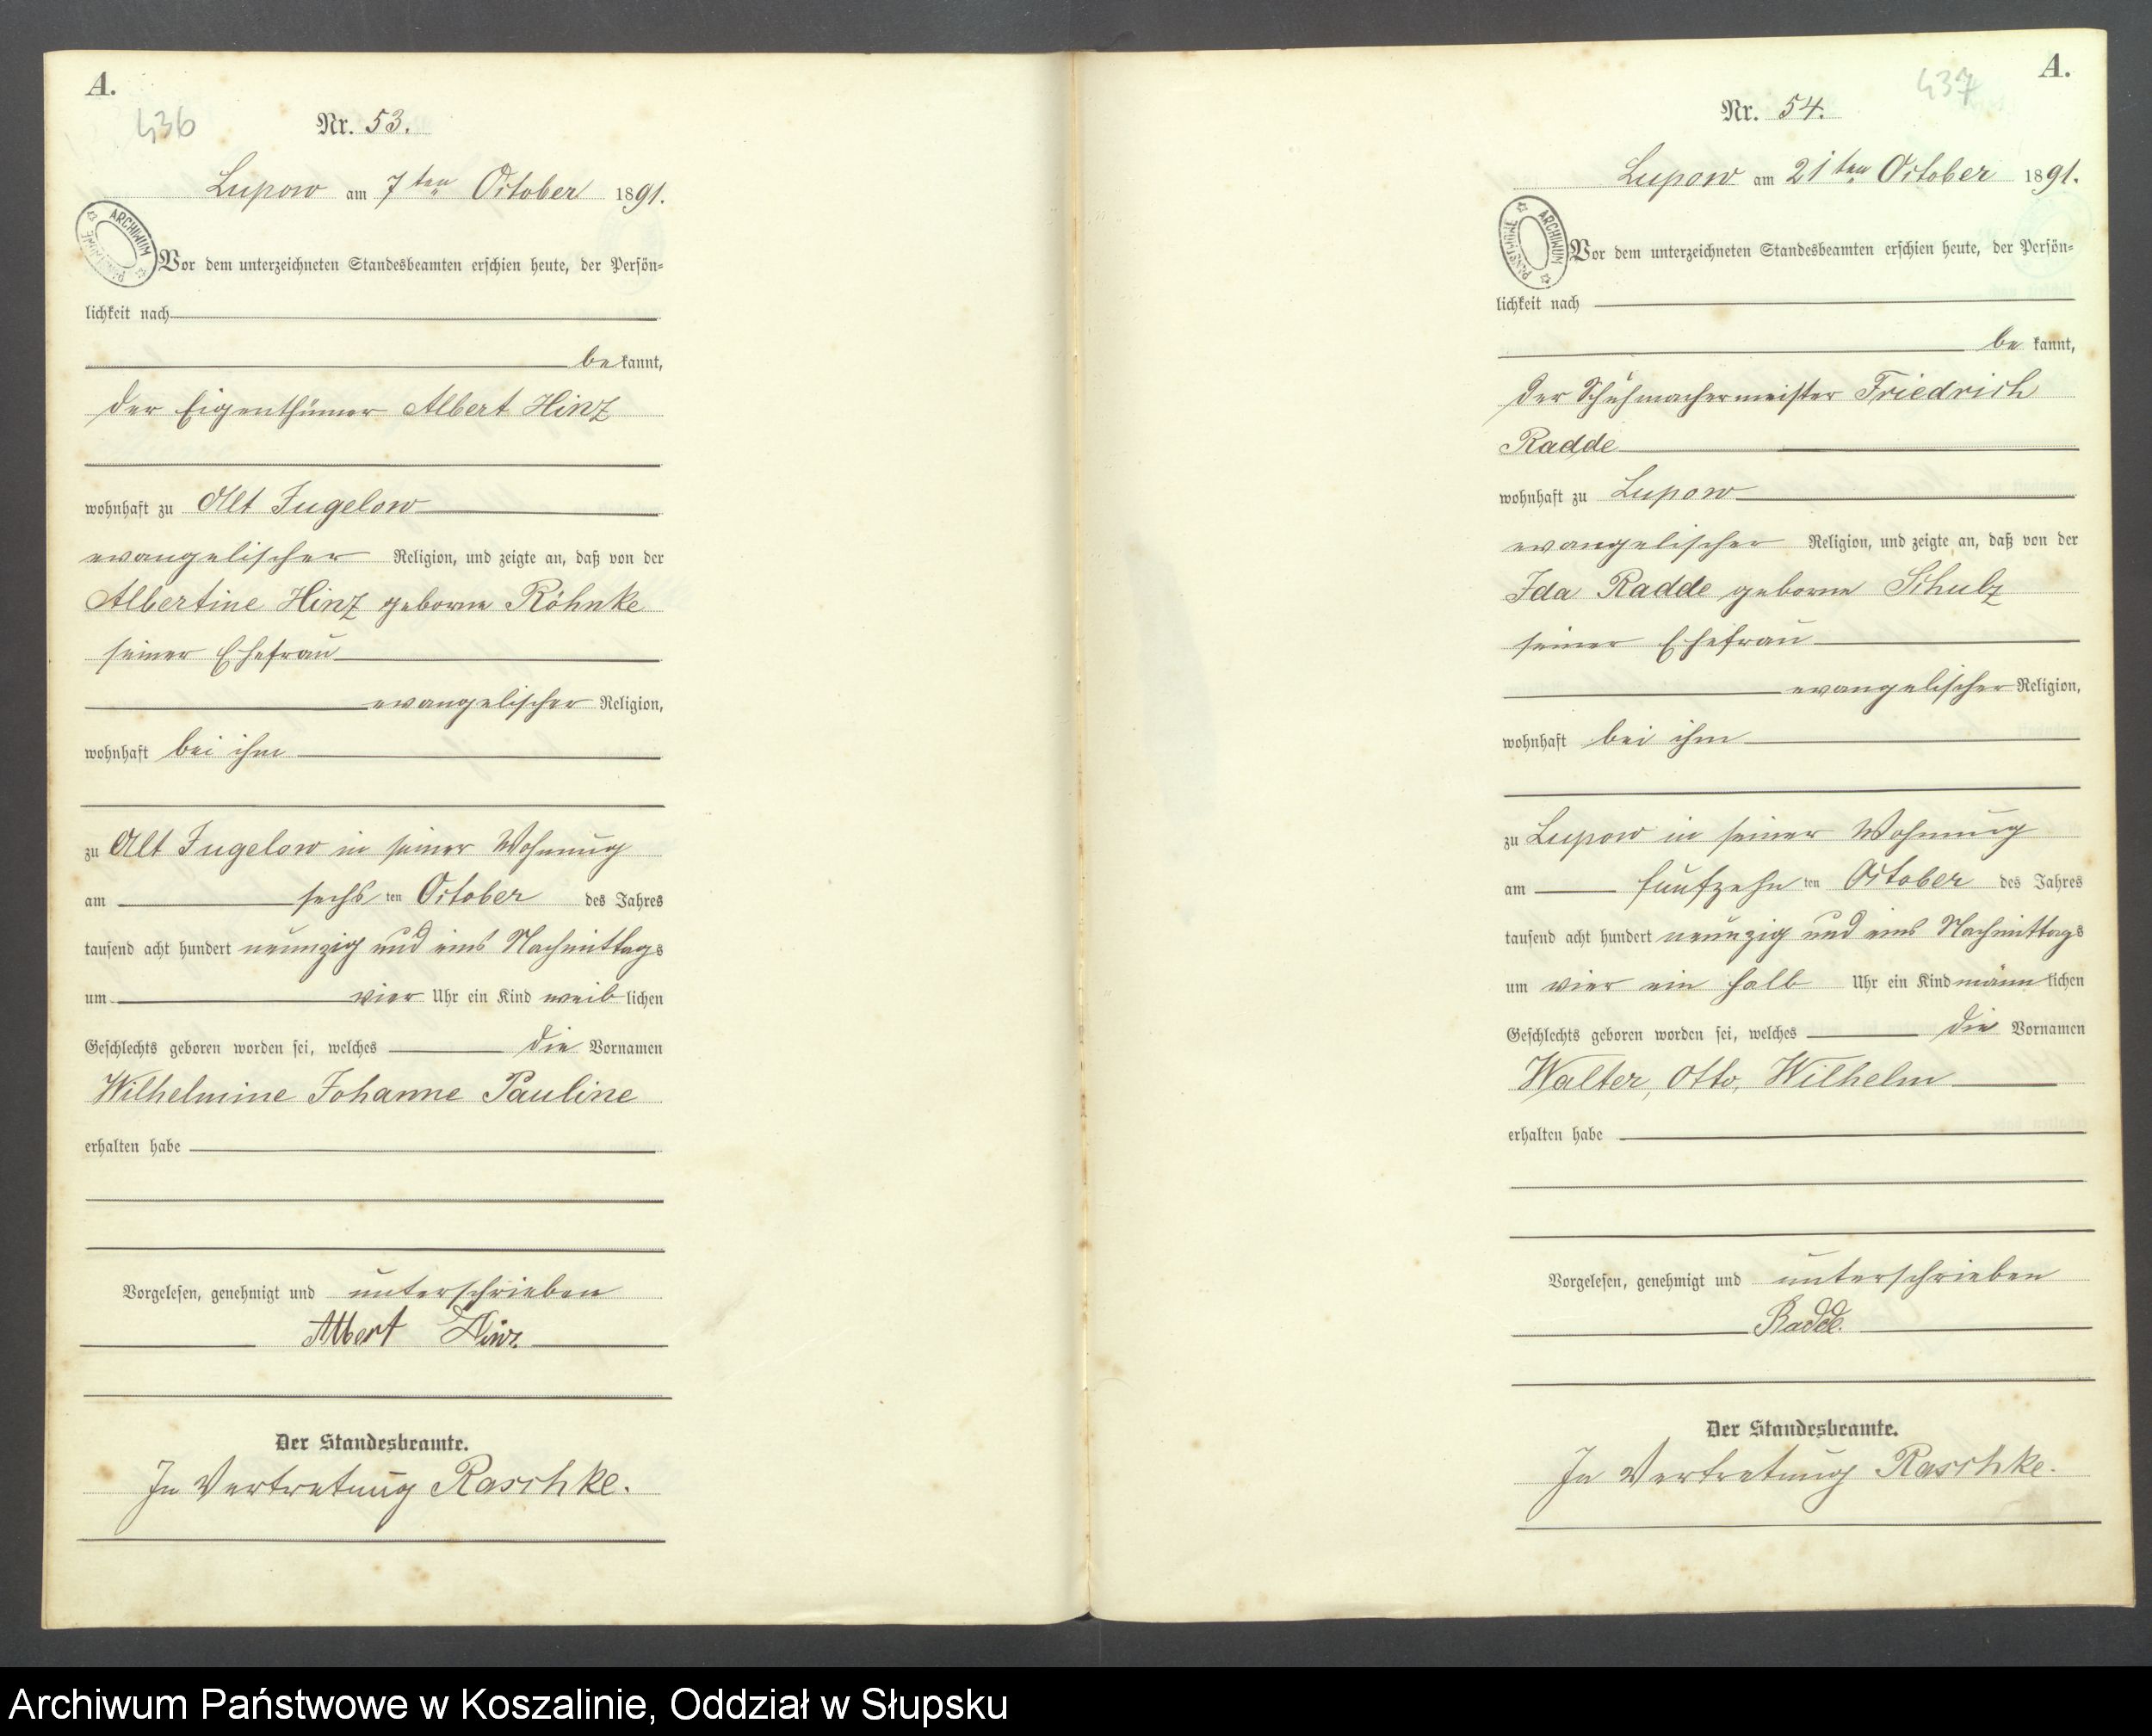 A.
436
Nr. 53.
Lupow am 7ten October 1891.
ARCHIWUM PAŃSTWOWE
Vor dem unterzeichneten Standesbeamten erschien heute, der Persön-
lichkeit nach
bekannt,
der Eigenthümer Albert Hinz
wohnhaft zu Alt Jugelow
evangelischer Religion, und zeigte an, daß von der
Albertine Hinz geborne Röhnke
seiner Ehefrau
evangelischer Religion,
wohnhaft bei ihm
zu Alt Jugelow in seiner Wohnung
am sechsten October des Jahres
tausend acht hundert neunzig und eins Nachmittags
um vier Uhr ein Kind weiblichen
Geschlechts geboren worden sei, welches die Vornamen
Wilhelmine Johanne Pauline
erhalten habe
Vorgelesen, genehmigt und unterschrieben
Albert Hinz
Der Standesbeamte.
In Vertretung Raschke.
A.
437
Nr. 54.
Lupow am 21ten October 1891.
ARCHIWUM PAŃSTWOWE
Vor dem unterzeichneten Standesbeamten erschien heute, der Persön-
lichkeit nach
bekannt,
der Schuhmachermeister Friedrich
Radde
wohnhaft zu Lupow
evangelischer Religion, und zeigte an, daß von der
Ida Radde geborne Schulz
seiner Ehefrau
evangelischer Religion,
wohnhaft bei ihm
zu Lupow in seiner Wohnung
am funfzehnten October des Jahres
tausend acht hundert neunzig und eins Nachmittags
um vier ein halb Uhr ein Kind männlichen
Geschlechts geboren worden sei, welches die Vornamen
Walter, Otto, Wilhelm
erhalten habe
Vorgelesen, genehmigt und unterschrieben
Radde.
Der Standesbeamte.
In Vertretung Raschke.
Archiwum Państwowe w Koszalinie, Oddział w Słupsku